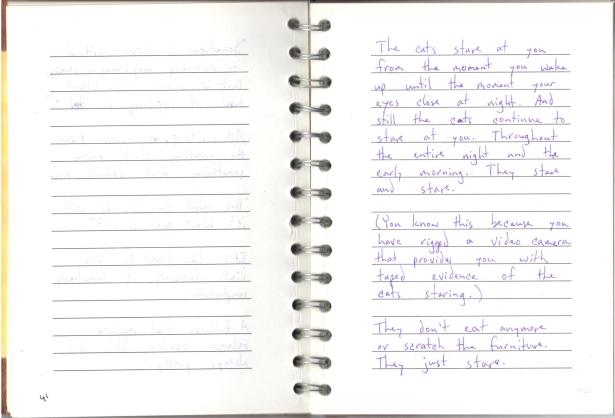 The cats stare at you
from the moment you wake
up until the moment your
eyes close at night. And
still the cats continue to
stare at you. Throughout
the entire night and the
early morning. They stare
and stare.
(You know this because you
have rigged a video camera
that provides you with
taped evidence of the
cats staring.)
They don't eat anymore
or scratch the furniture.
They just stare.